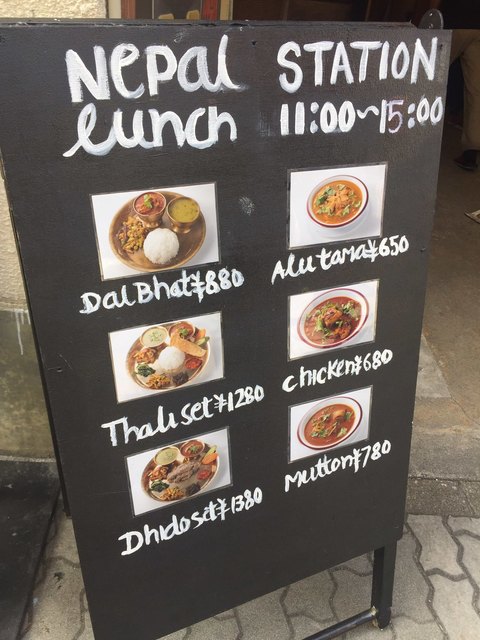 Nepal STATION
Lunch 11:00~15:00
Dal Bhat ¥880
Alu tama ¥650
Thali set ¥1280
Chicken ¥680
Dhido set ¥1380
Mutton ¥780